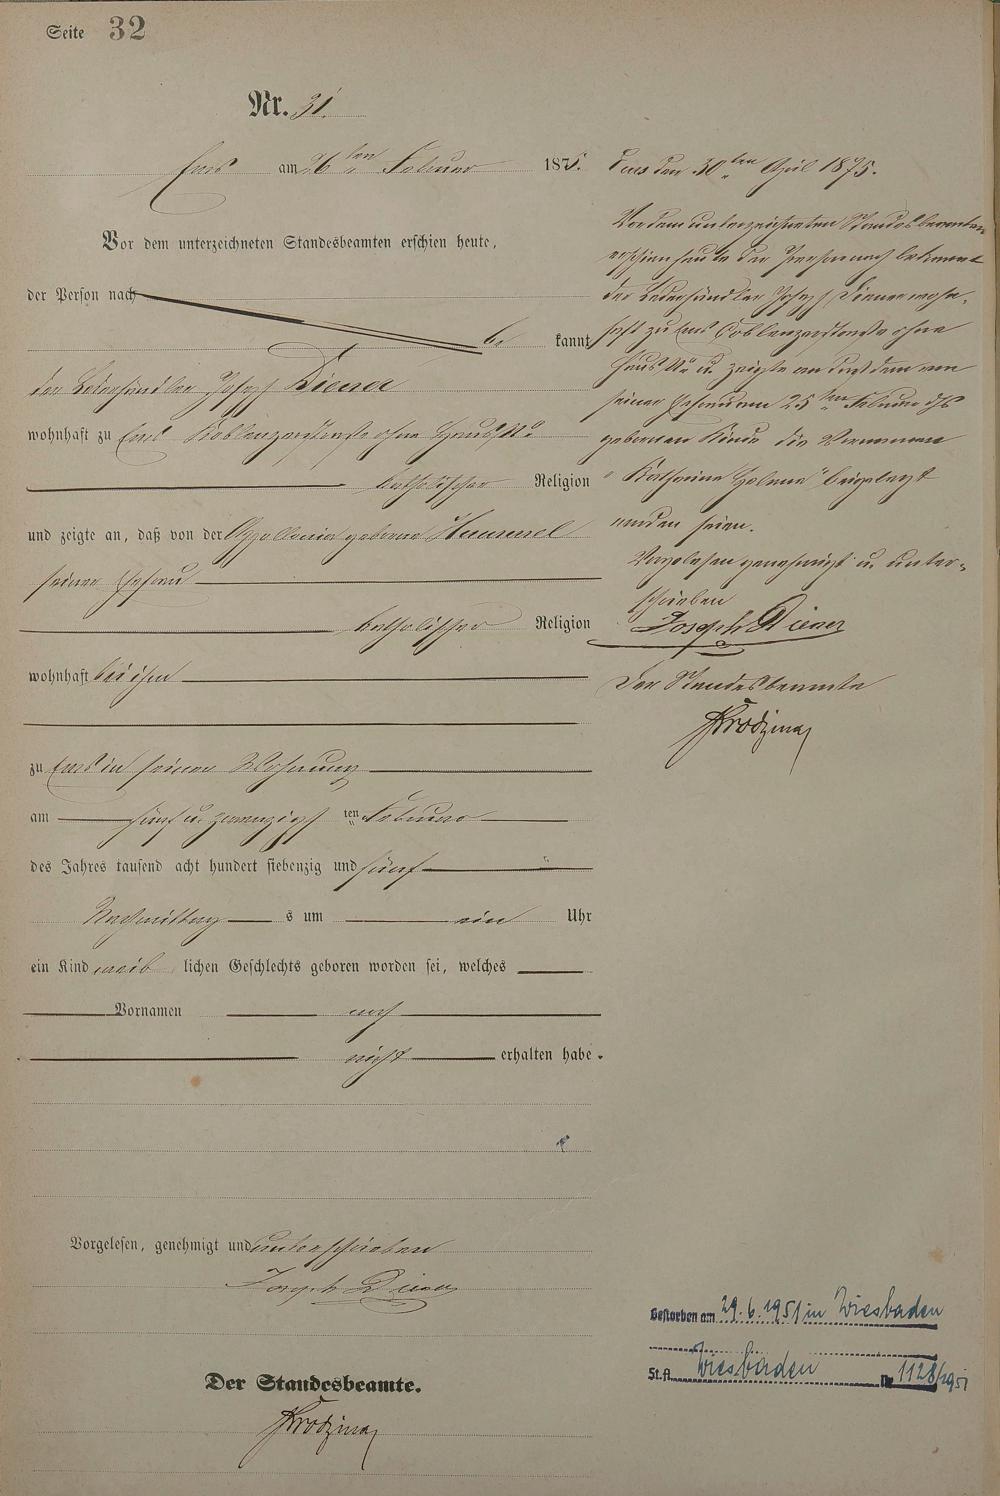 Seite 32
Nr. 31.
Ems am 26ten Februar 1875.
Vor dem unterzeichneten Standesbeamten erschien heute,
der Person nach
be kannt
der Lederhändler Joseph Diener
wohnhaft zu Ems Koblenzerstraße ohne Haus No
katholischer Religion
und zeigte an, daß von der Appollonia geborne Hummel
seiner Ehefrau
katholischer Religion
wohnhaft bei ihm
zu Ems in seiner Wohnung
am fünf u. zwanzigst ten Februar
des Jahres tausend acht hundert siebenzig und fünf
Nachmittag s um ein Uhr
ein Kind weib lichen Geschlechts geboren worden sei, welches
Vornamen noch
nicht erhalten habe.
Vorgelesen, genehmigt und unterschrieben
Joseph Diener
Der Standesbeamte.
Krodzina
Ems den 30ten April 1875.
Vor dem unterzeichneten Standesbeamten
erschien heute der Person nach bekannt
der Lederhändler Joseph Diener wohn-
haft zu Ems Coblenzerstraße ohne
Haus No u. zeigte an daß dem von
seiner Ehefrau am 25ten Februar ds Js
gebornen Kinde die Vornamen
"Katharina Helena" beigelegt
worden seien.
Vorgelesen genehmigt u. unter-
schrieben
Joseph Diener
Der Standesbeamte
Krodzina
Gestorben am 29.6.1951 in Wiesbaden
St.A. Wiesbaden Nr. 1128/1951